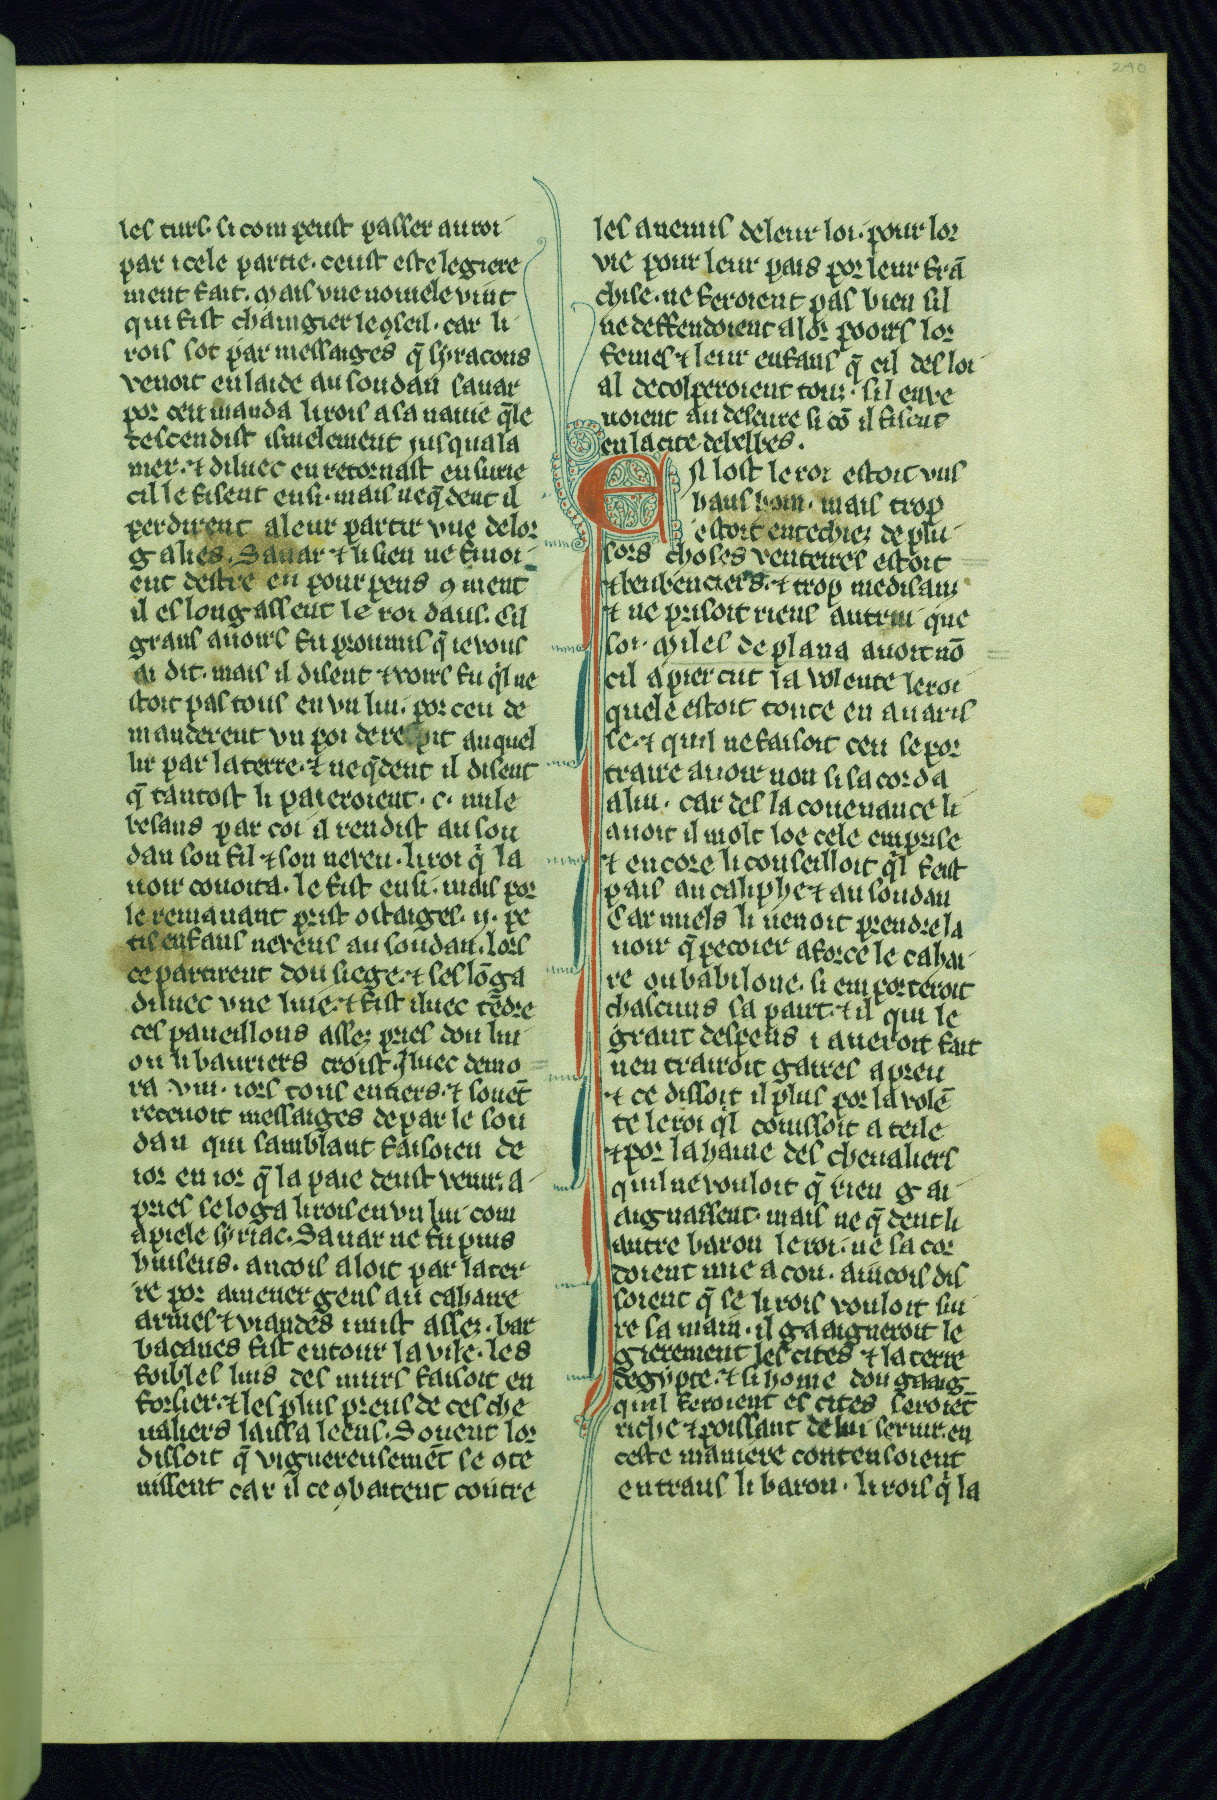 240
les turs. si com peust passer au roi
par icele partie. ceust este legiere
ment fait. mais vne nouuele vint
qui fist chaingier le ɔseil. car li
rois sot par messaiges q̄ syracons
venoit en laide au soudan sauar
por ceu manda li rois a sa nauie q̄le
descendist isnelement jusqua la
mer. ⁊ diluec en retornast en surie
cil le fisent ensi. mais neq̄dent il
perdirent a leur partir vne de lor
galies. Sauar ⁊ li sien ne finoi
ent destre en pourpens ɔment
il eslongassent le roi daus. sil
grans auoirs fu proumis q̄ ie vous
ai dit. mais il disent ⁊ voirs fu q̄l ne
stoit pas tous en vn liu. por ceu de
manderent vn poi de respit auquel
lir par la terre. ⁊ neq̄dent il disent
q̄ tantost li paieroient. c. mile
besans par coi il rendist au sou
dan son fil ⁊ son neueu. li roi q̄ la
uoir couoita. le fist ensi. mais por
le remanant prist ostaiges. ij. pe
tis enfans neueus au soudan. lors
ce partirent dou siege. ⁊ ses lōga
diluec vne liue. ⁊ fist iluec tēdre
ces paueillons assez pries dou liu
ou li bauriers croist. Iluec demo
ra .viii. iors tous entiers. ⁊ souēt
receuoit messaiges de par le sou
dan qui samblant faisoien de
ior en ior q̄ la paie deust venir. a
pries se loga li rois en vn liu com
apiele syriac. Sauar ne fu puis
huiseus. ancois aloit par la ter
re por amener gens au cahaire
armes ⁊ viandes i mist assez. bar
bacanes fist entour la vile. les
foibles lius des murs faisoit en
forsier. ⁊ les plus preus de ces che
ualiers laissa leens. Souent lor
dissoit q̄ viguereusemēt se ɔte
nissent car il ce ɔbatent contre
les anemis de leur loi. pour lor
vie pour leur pais por leur frā
chise. ne feroient pas bien sil
ne deffendoient a lor pooirs lor
femes ⁊ leur enfans q̄ cil desloi
al decosperoient touz. sil en ve
noient au deseure si cō il fisent
en la cite de belbes.
En lost le roi estoit vns
haus hom. mais trop
estoit entechiez de plu
sors choses venteires estoit
⁊ beubenciers. ⁊ trop medisanz
⁊ ne prisoit riens autrui que
soi. Miles de plana auoit nō
cil apiercut la volente le roi
quele estoit toute en auaris
se. ⁊ quil ne faisoit ceu se por
traire auoir non si sacorda
a lui. car des la couenance li
auoit il molt loe cele emprise
⁊ encore li conseilloit q̄l feist
pais au caliphe ⁊ au soudan
Car miels li uenoit prendre la
uoir q̄ pecoier a force le cahai
re ou babilone. si emporteroit
chascuns sa part. ⁊ il qui le
grant despens i aueroit fait
nen trairoit gaires a preu
⁊ ce dissoit il plus por la volē
te le roi q̄l conissoit a teile
⁊ por la haine des cheualiers
quil ne vouloit q̄ rien gai
aignassent. mais neq̄dent li
autre baron le roi. ne sacor
doient mie a cou. aincois dis
soient q̄ se li rois vouloit sui
re sa main. il gaaigneroit le
gierement les cites ⁊ la terre
degypte. ⁊ si home dou gaaig
quil feroient es cites seroiēt
riche ⁊ poissant de lui seruir. en
ceste maniere contensoient
entraus li baron. li rois q̄ la